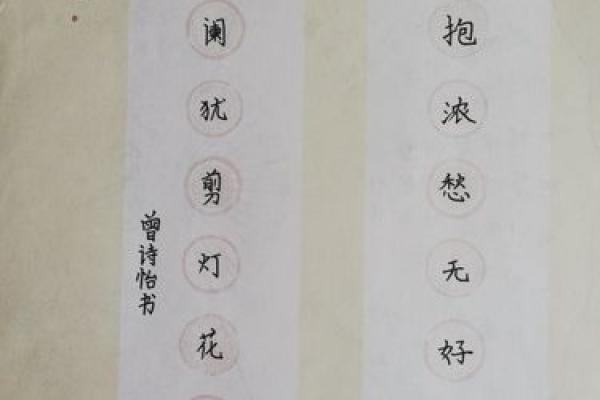 抱浓愁无好
阑犹剪灯花
曾诗怡书